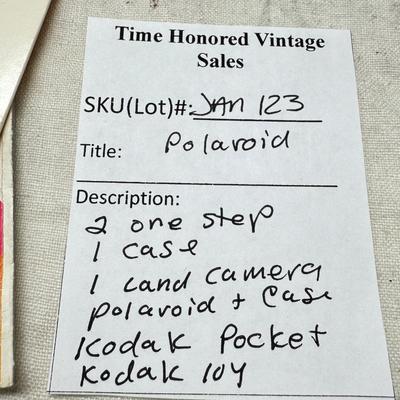 Time Honored Vintage
Sales
SKU(Lot)#: JAN 123
Title: Polaroid
Description:
2 one step
1 case
1 Land camera
polaroid + Case
Kodak Pocket
Kodak 104